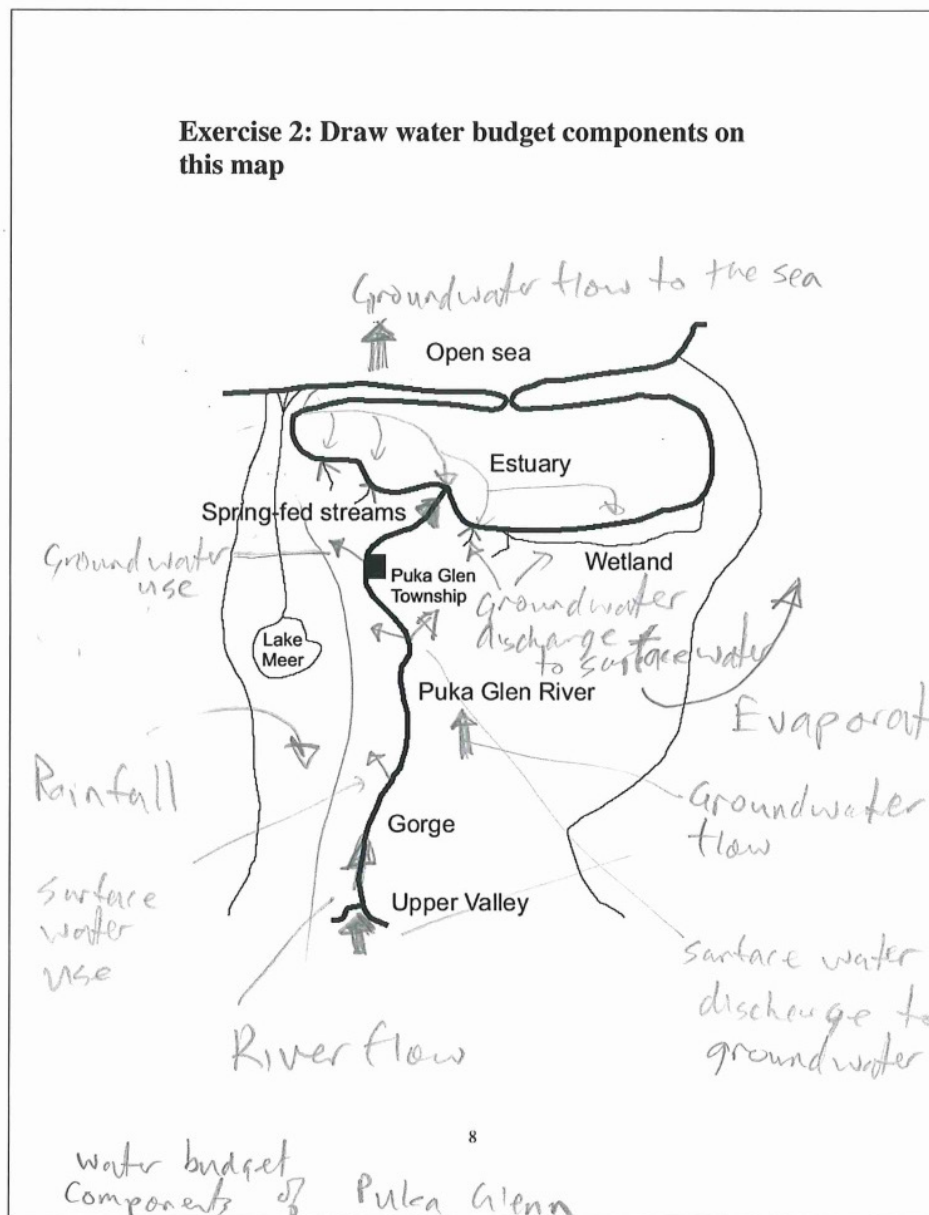 Exercise 2: Draw water budget components on
this map
Groundwater flow to the sea
Open sea
Estuary
Spring-fed streams
Wetland
Groundwater
use
Puka Glen
Township
Groundwater
discharge
to surface water
Lake
Meer
Puka Glen River
Evaporat
Rainfall
Groundwater
flow
Gorge
Upper Valley
surface
water
use
surface water
discharge to
groundwater
River flow
8
water budget
Components of Puka Glenn